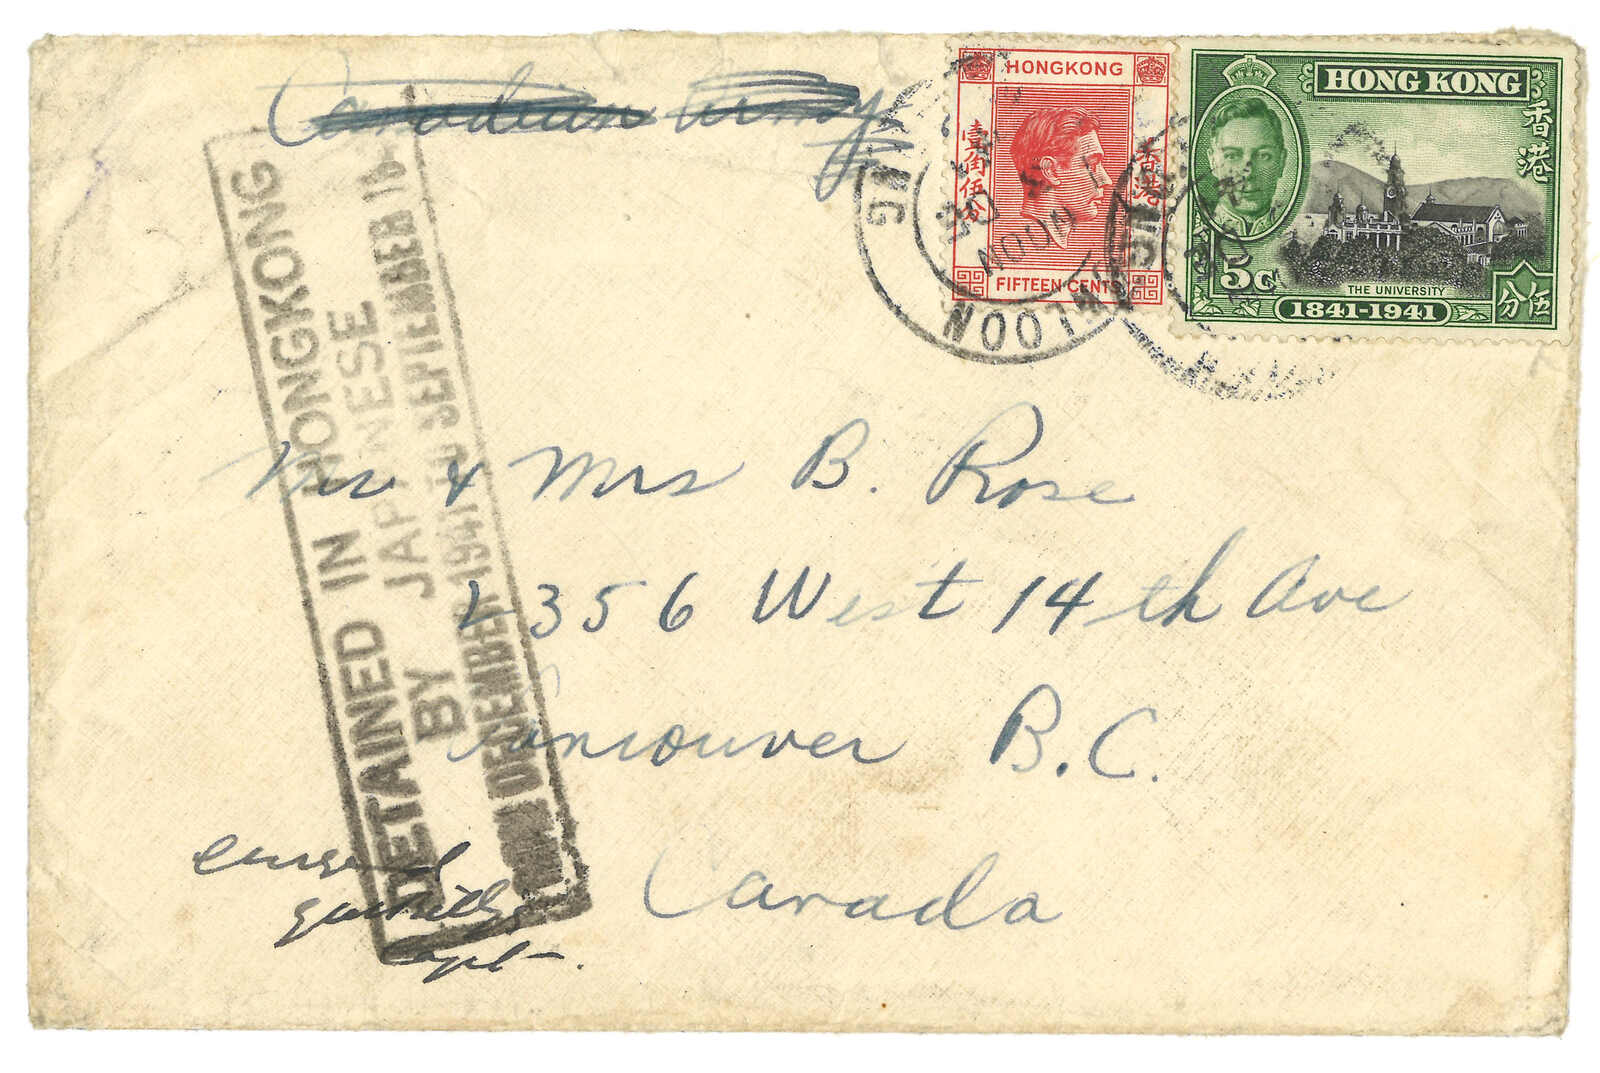 Canadian Army
HONGKONG
壹角伍分
香港
FIFTEEN CENTS
HONG KONG
香港
5c
THE UNIVERSITY
1841-1941
伍分
KOWLOON
NOON
DETAINED IN HONGKONG
BY JAPANESE
DECEMBER 1941 TO SEPTEMBER
Mr & Mrs B. Rose
2356 West 14th Ave
Vancouver B.C.
Canada
Capt.